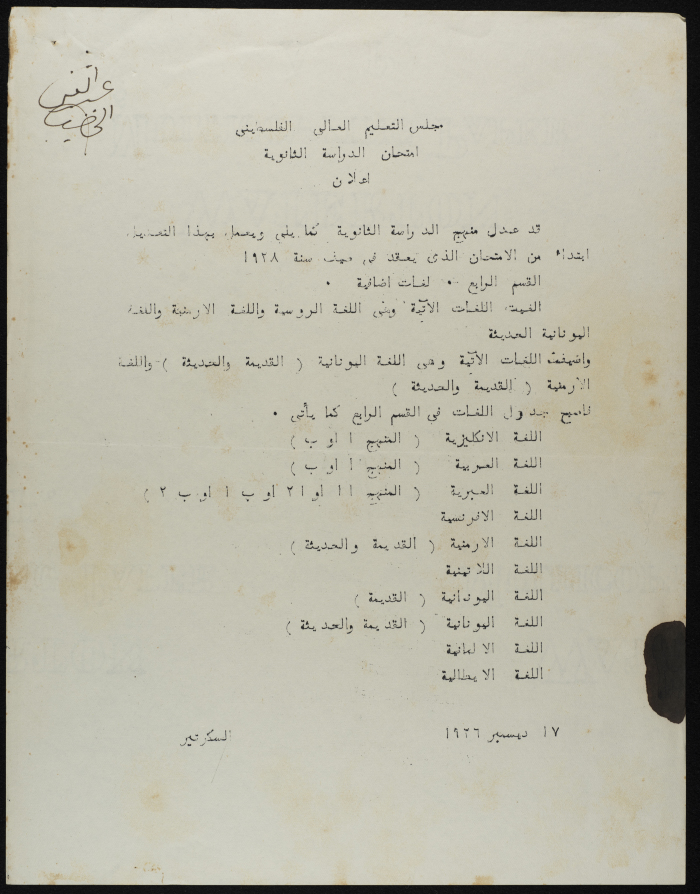 عبد الغني
الخطيب
مجلس التعليم العالى الفلسطينى
امتحان الدراسة الثانوية
اعلان
قد عدل منهج الدراسة الثانوية كما يلى ويعمل بهذا التعديل
ابتداء من الامتحان الذى يعقد فى صيف سنة ١٩٢٨
القسم الرابع -٠ لغات اضافية ٠
الغيت اللغات الآتية وهى اللغة الروسية واللغة الارمنية واللغة
اليونانية الحديثة
واضيفت اللغات الآتية وهى اللغة اليونانية ( القديمة والحديثة ) واللغة
الارمنية ( القديمة والحديثة )
فاصبح جدول اللغات فى القسم الرابع كما يأتى ٠
اللغة الانكليزية ( المنهج ا او ب )
اللغة العربية ( المنهج ا او ب )
اللغة العبرية ( المنهج ا ١ او ا ٢ او ب ١ او ب ٢ )
اللغة الافرنسية
اللغة الارمنية ( القديمة والحديثة )
اللغة اللاتينية
اللغة اليونانية ( القديمة )
اللغة اليونانية ( القديمة والحديثة )
اللغة الالمانية
اللغة الايطالية
١٧ ديسمبر ١٩٢٦ السكرتير